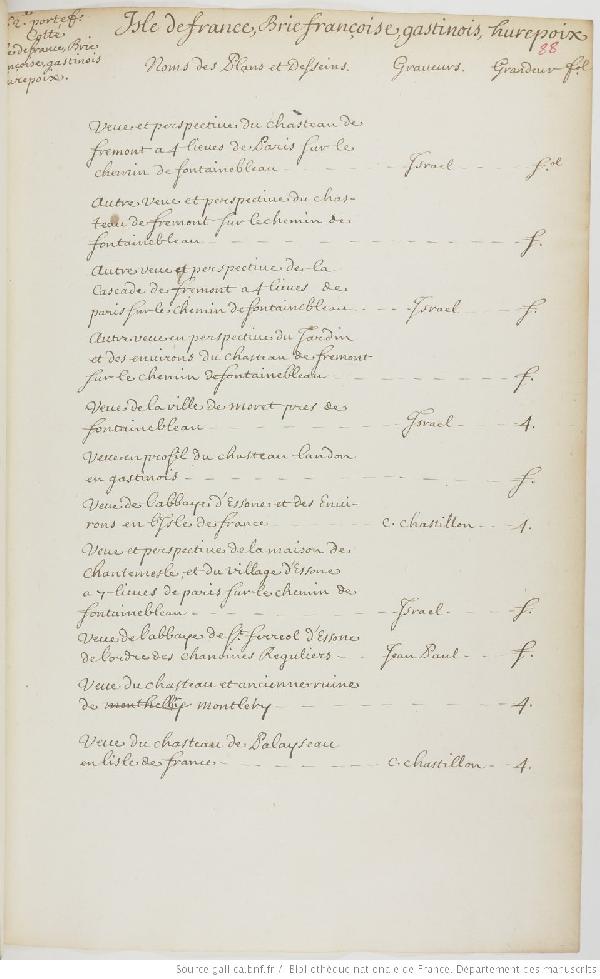 Isle de france, Brie françoise, gastinois, hurepoix
88
porteff.
Cotté
de france, Brie
gastinois
hurepoix.
Noms des Plans et Desseins. Graveurs. Grandeur fol
Veue et perspective du chasteau de
fremont a 4 lieues de Paris sur le
chemin de fontainebleau Israel fol
Autre veue et perspective du chas-
teau de fremont sur le chemin de
fontainebleau f.
Autre veue et perspective de la
Cascade de fremont a 4 lieues de
paris sur le chemin de fontainebleau Israel f.
Autre veue en perspective du Jardin
et des environs du chasteau de fremont
sur le chemin de fontainebleau f.
Veue de la ville de moret pres de
fontainebleau Israel 4.
Veue en profil du chasteau landon
en gastinois f.
Veue de l'abbaye d'Essone et des Envi-
rons en l'Isle de france c. chastillon 4.
Veue et perspective de la maison de
Chantemesle, et du village d'Essone
a 7 lieues de paris sur le chemin de
fontainebleau Israel f.
Veue de l'abbaye de St. ferreol d'Essone
de l'ordre des chanoines Reguliers Jean Paul f.
Veue du chasteau et ancienne ruine
de montlehery 4.
Veue du chasteau de Palayseau
en l'isle de france c. chastillon 4.
Source gallica.bnf.fr / Bibliothèque nationale de France. Département des manuscrits